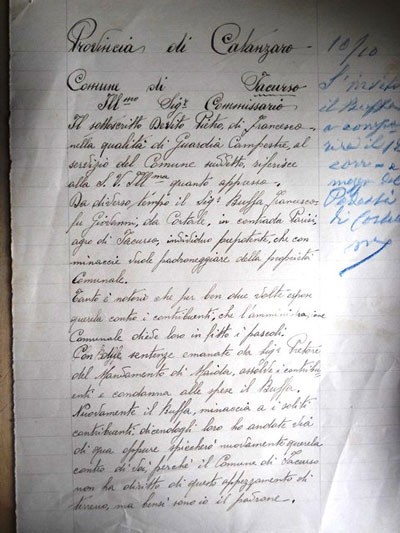 Provincia di Catanzaro
Comune di Jacurso
Ill.mo Sig.r Commissario
Il sottoscritto Devito Pietro, di Francesco,
nella qualità di Guardia Campestre, al
servizio del Comune suddetto, riferisce
alla S. V. Ill.ma quanto appresso.
Da diverso tempo il Sig.r Buffa Francesco
fu Giovanni, da Cortale, in contrada
agro di Jacurso, individuo prepotente, che con
minaccie vuole padroneggiare della proprietà
Comunale.
Tanto è notorio che per ben due volte espose
querela contro i contribuenti, che l'amministrazione
Comunale diede loro in fitto i pascoli.
Con due sentenze emanate da Sig.r Pretore
del Mandamento di Maida, assolve i contribu
enti e condanna alle spese il Buffa.
Nuovamente il Buffa, minaccia a i soliti
contribuenti dicendogli loro ho andate via
di qua oppure spiccherò nuovamente querela
contro di Voi perché il Comune di Jacurso
non ha diritto di questo appezzamento di
terreno, ma bensì sono io il padrone.
10/10
S'inviti
il Buffa
a
il 12
corr.